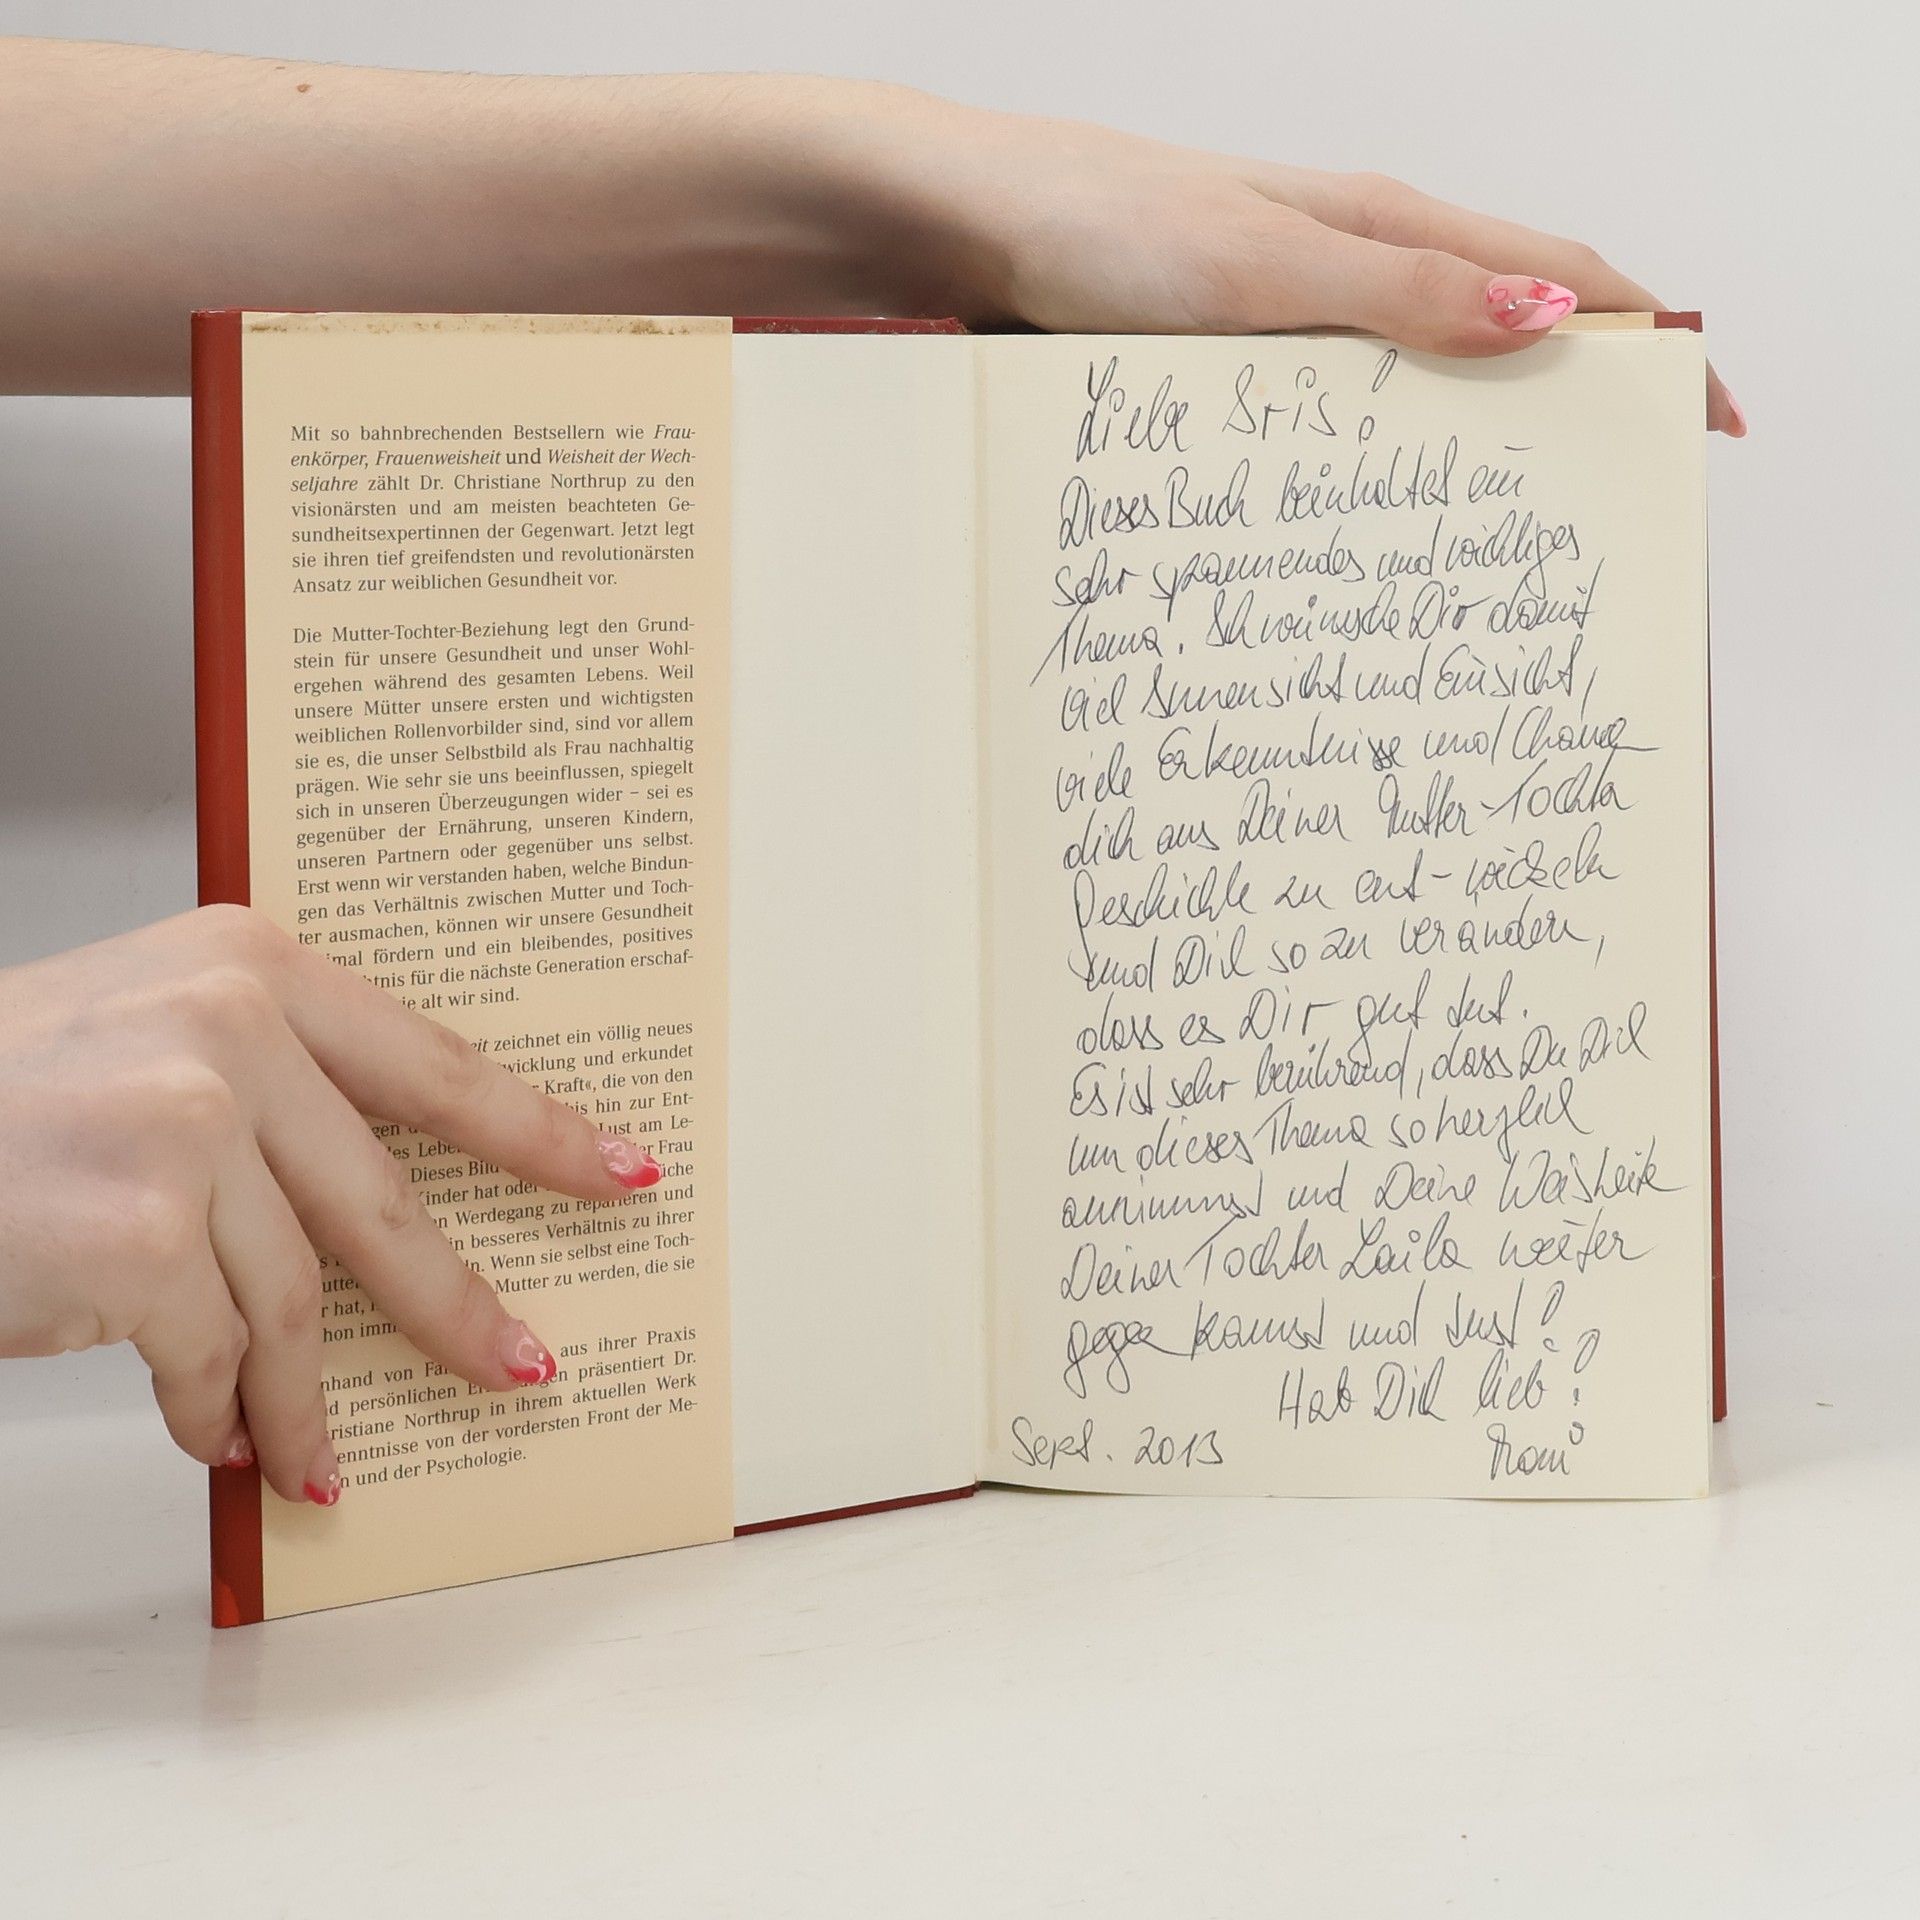 Mit so bahnbrechenden Bestsellern wie Frau-
enkörper, Frauenweisheit und Weisheit der Wech-
seljahre zählt Dr. Christiane Northrup zu den
visionärsten und am meisten beachteten Ge-
sundheitsexpertinnen der Gegenwart. Jetzt legt
sie ihren tief greifendsten und revolutionärsten
Ansatz zur weiblichen Gesundheit vor.
Die Mutter-Tochter-Beziehung legt den Grund-
stein für unsere Gesundheit und unser Wohl-
ergehen während des gesamten Lebens. Weil
unsere Mütter unsere ersten und wichtigsten
weiblichen Rollenvorbilder sind, sind vor allem
sie es, die unser Selbstbild als Frau nachhaltig
prägen. Wie sehr sie uns beeinflussen, spiegelt
sich in unseren Überzeugungen wider – sei es
gegenüber der Ernährung, unseren Kindern,
unseren Partnern oder gegenüber uns selbst.
Erst wenn wir verstanden haben, welche Bindun-
gen das Verhältnis zwischen Mutter und Toch-
ter ausmachen, können wir unsere Gesundheit
fördern und ein bleibendes, positives
für die nächste Generation erschaf-
alt wir sind.
zeichnet ein völlig neues
und erkundet
Kraft«, die von den
hin zur Ent-
am Le-
Frau
Dieses
hat
Werdegang zu reparieren und
besseres Verhältnis zu ihrer
Wenn sie selbst eine Toch-
Mutter zu werden, die sie
hat,
von aus ihrer Praxis
persönlichen präsentiert Dr.
Northrup in ihrem aktuellen Werk
von der vordersten Front der Me-
und der Psychologie.
Liebe Iris!
Dieses Buch beinhaltet ein
sehr spannendes und wichtiges
Thema. Ich wünsche Dir damit
viel Innensicht und Einsicht,
viele Erkenntnisse und Chance
dich aus Deiner Mutter-Tochter
Geschichte zu ent-wickeln
und Dich so zu verändern,
dass es Dir gut tut.
Es ist sehr berührend, dass Du Dich
um dieses Thema so herzlich
annimmst und Deine Weisheit
Deiner Tochter Laila weiter
kannst und tust!
Hab Dich lieb!
Sept. 2013